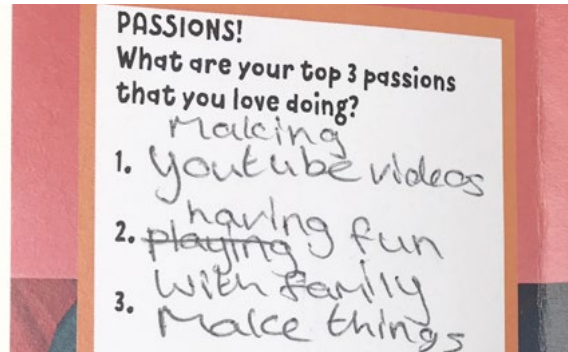 PASSIONS!
What are your top 3 passions
that you love doing?
Making
1. youtube videos
having fun
2. playing
with family
3. Make things